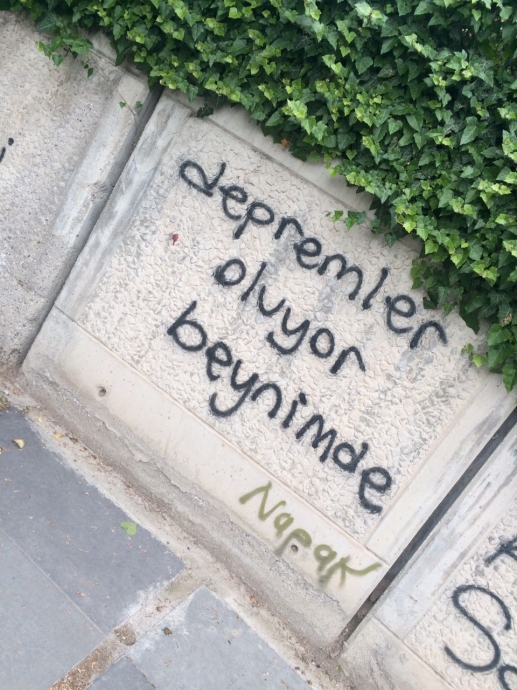 depremler
oluyor
beynimde
Napak